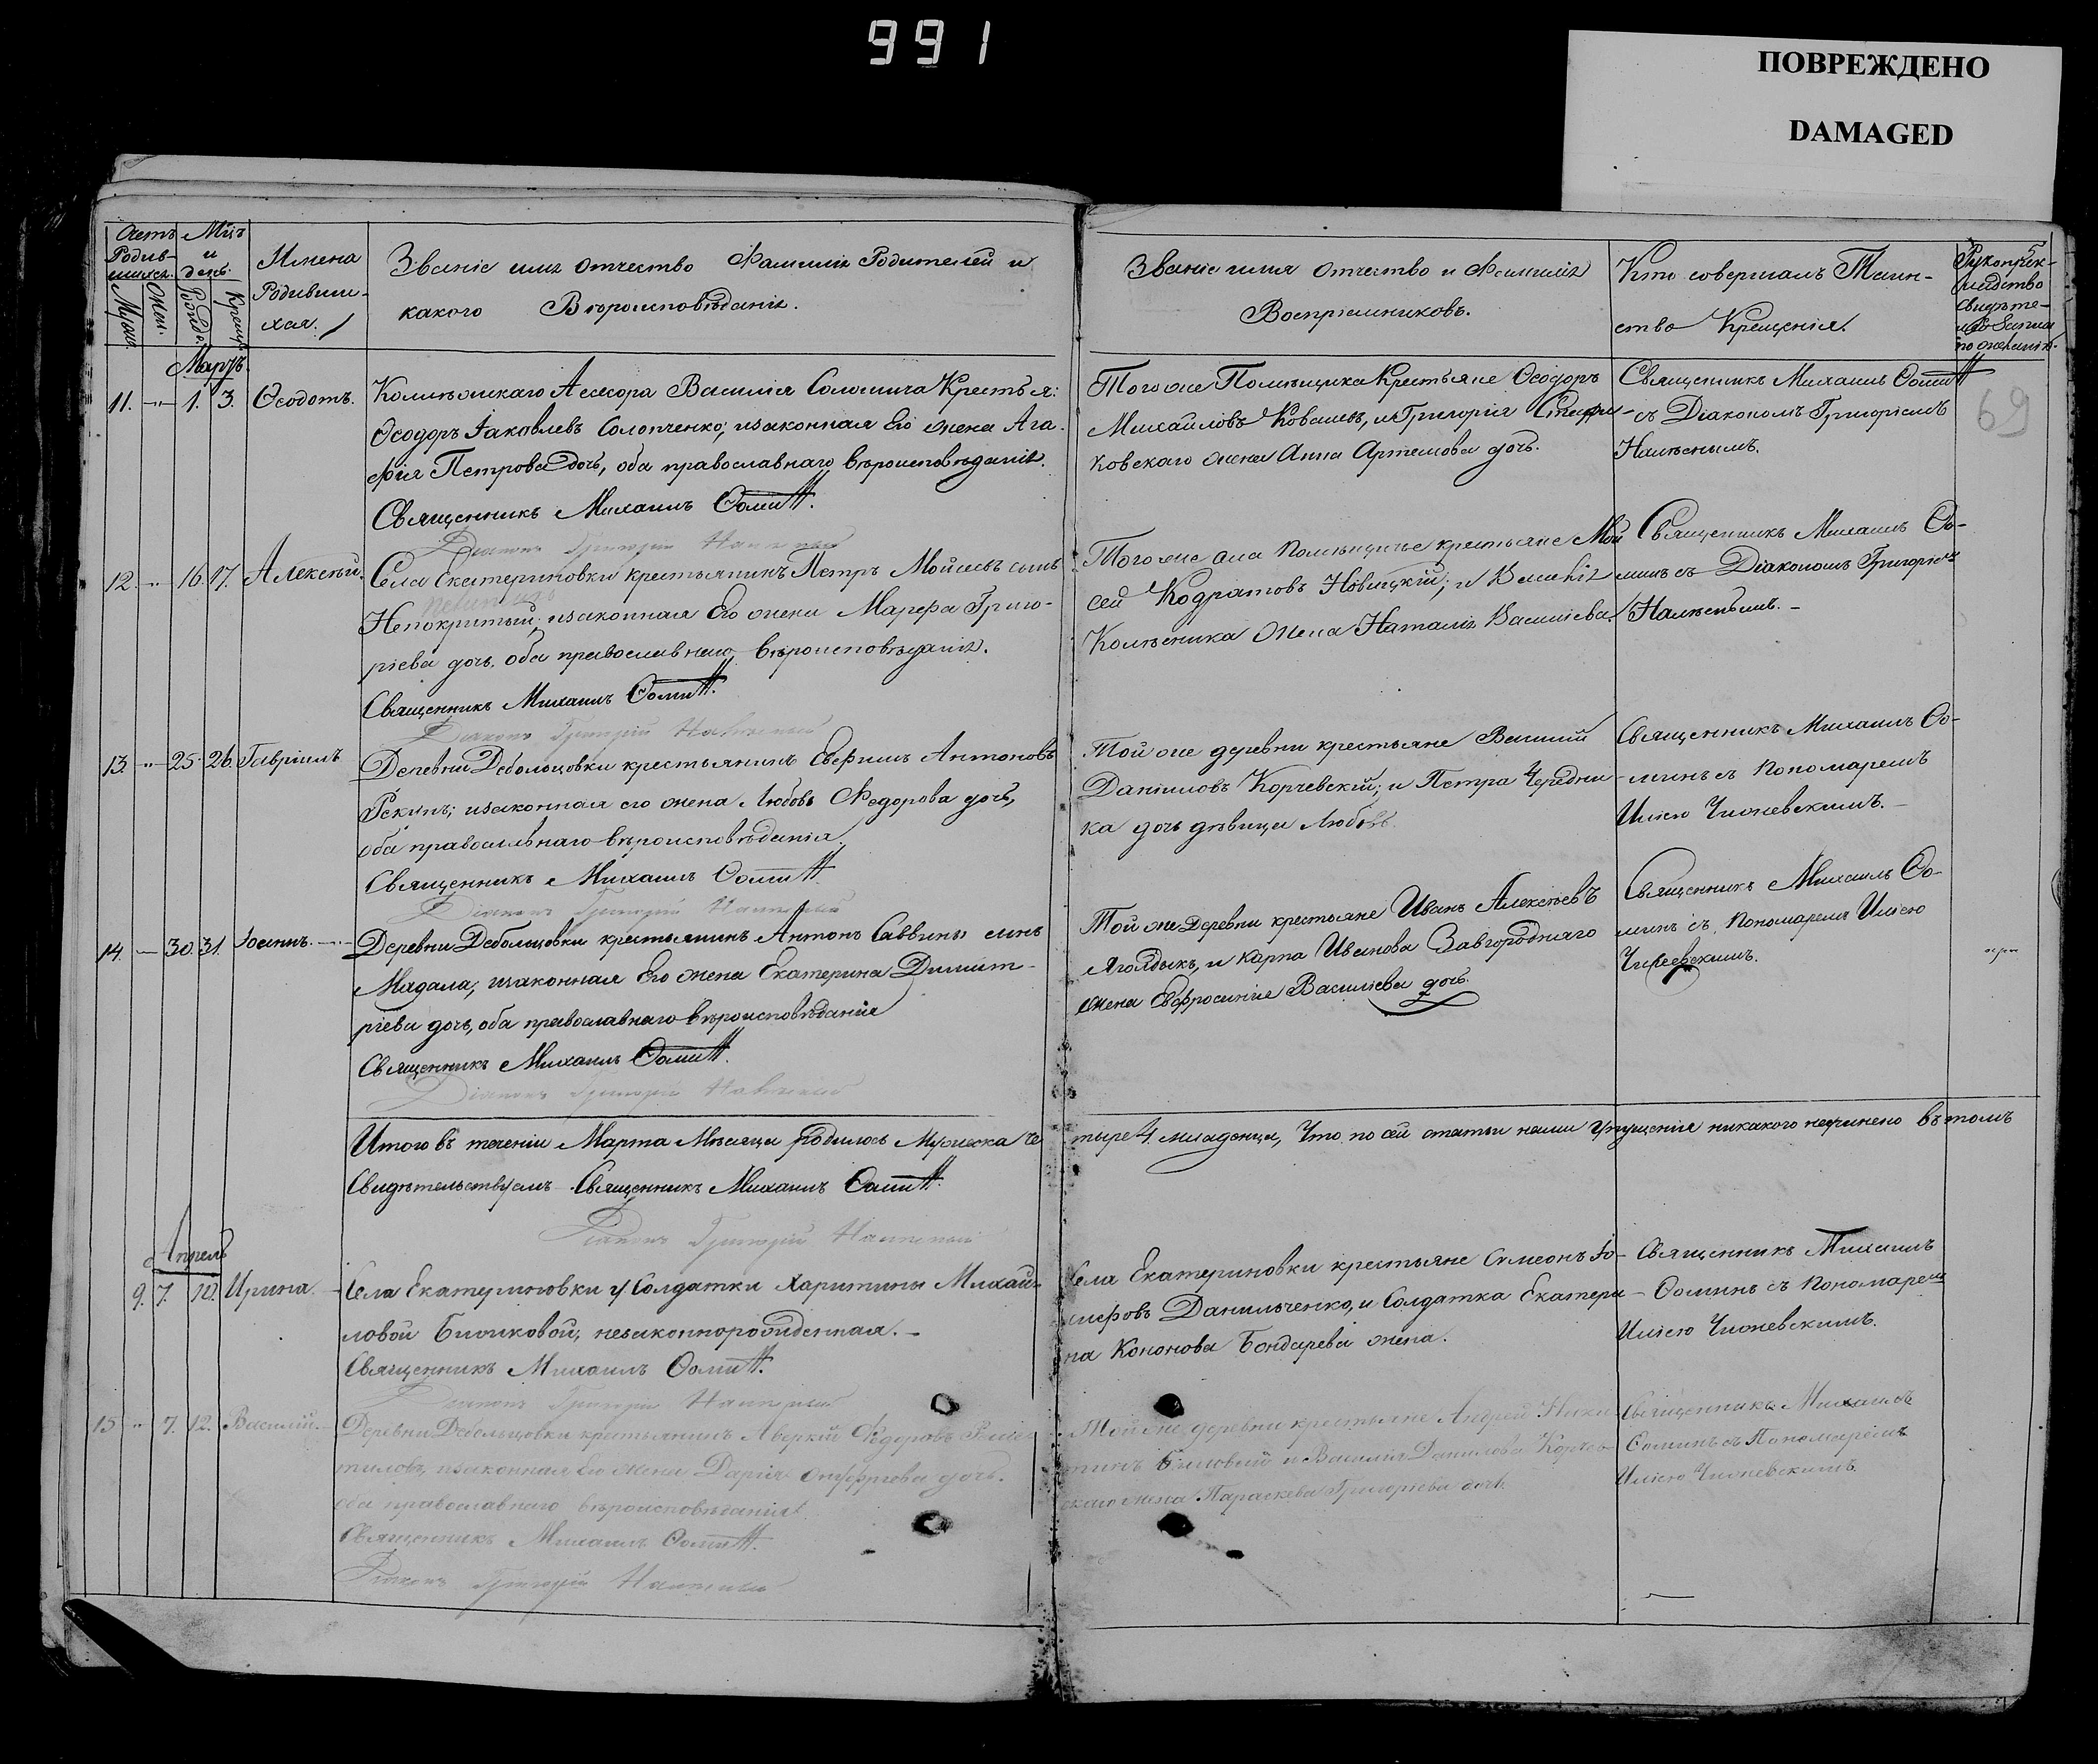 991
ПОВРЕЖДЕНО
DAMAGED
Счетъ Родив-шихся.
Муж. Жен.
Мцъ и день.
Рожд. Крещ.
Имена Родивши-хся.
Званіе имя отчество Фамилія Родителей и
какого Вѣроисповѣданія.
Званіе имя отчество и Фамилія
Воспріемниковъ.
Кто совершалъ Таин-
ство Крещенія.
Рукоприк-
ладство
свидѣте-
по желанію.
69
Мартъ.
11. " 1. 3. Ѳеодотъ.
Коллежскаго Асессора Василія Крестья:
Ѳеодоръ Іаковлевъ Солопченко; изаконная Его жена Ага-
фія Петрова дочь, оба православнаго вѣроисповѣданія.
Священникъ Михаилъ Ѳоминъ.
Діаконъ Григорій
Тогоже Помѣщика Крестьяне Ѳеодоръ
Михайловъ Ковалевъ, и Григорія
ковскаго жена Анна Артемова дочь.
Священникъ Михаилъ Ѳоминъ
съ Діакономъ Григоріемъ
12. " 16. 17. Алексѣй.
Села Екатериновки крестьянинъ Петръ Мойсеевъ сынъ
Непокритый; изаконная Его жена Марфа Григо-
ріева дочь, оба православнаго вѣроисповѣданія.
Священникъ Михаилъ Ѳоминъ.
Діаконъ Григорій
Тогоже села помѣщичье крестьяне Мой
сей Кодратовъ Новицкій; и Василія
Колѣсника жена Наталія Василіева.
Священникъ Михаилъ Ѳо-
минъ съ Діакономъ Григоріемъ
13. " 25. 26. Гавріилъ
Деревни Дебольцовки крестьянинъ Евфимъ Антоновъ
изаконная его жена Любовь Федорова дочь,
оба православнаго вѣроисповѣданія.
Священникъ Михаилъ Ѳоминъ
Діаконъ Григорій
Той же деревни крестьяне Василій
Даніиловъ Корчевскій; и Петра Чередни-
ка дочь дѣвица Любовь.
Священникъ Михаилъ Ѳо-
минъ съ Пономаремъ
Иліею Чижевскимъ.
14. — 30. 31. Іоаннъ.
Деревни Дебольцовки крестьянинъ Антонъ Саввинъ сынъ
Мадала; изаконная Его жена Екатерина Димит-
ріева дочь, оба православнаго вѣроисповѣданія
Священникъ Михаилъ Ѳоминъ.
Діаконъ Григорій
Той же деревни крестьяне Иванъ Алексѣевъ
и Карпа Иванова Завгородняго
жена Евфросинія Василіева дочь.
Священникъ Михаилъ Ѳо-
минъ съ Пономаремъ Иліею
Итого въ теченіи Марта Мѣсяца родилось Мужеска че
тыре 4 младенца, Что по сей статьи нами упущенія никакого неучинено въ томъ
Свидѣтельствуемъ Священникъ Михаилъ Ѳоминъ.
Діаконъ Григорій
Апрель
9. 7. 10. Ирина.
Села Екатериновки у Солдатки Харитины Михай-
ловой незаконнорожденная.
Священникъ Михаилъ Ѳоминъ.
Діаконъ Григорій
Села Екатериновки крестьяне Симеонъ
Данильченко, и Солдатка Екатери-
на Кононова Бондарева жена.
Священникъ Михаилъ
Ѳоминъ съ Пономаремъ
Иліею Чижевскимъ.
15 " 7. 12. Василій.
Деревни Дебольцовки крестьянинъ Аверкій Федоровъ
изаконная Его жена Дарія Онуфріева дочь.
оба православнаго вѣроисповѣданія.
Священникъ Михаилъ Ѳоминъ.
Діаконъ Григорій
Той же деревни крестьяне Андрей Ники-
и Василія Данилова Корчев-
скаго жена Параскева Григоріева дочь
Священникъ Михаилъ
Ѳоминъ съ Пономаремъ
Иліею Чижевскимъ.